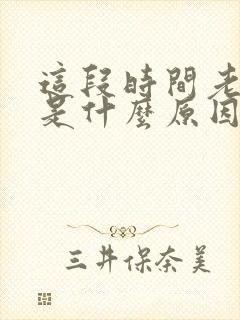 這段時間老
是什麼原因
三井保奈美